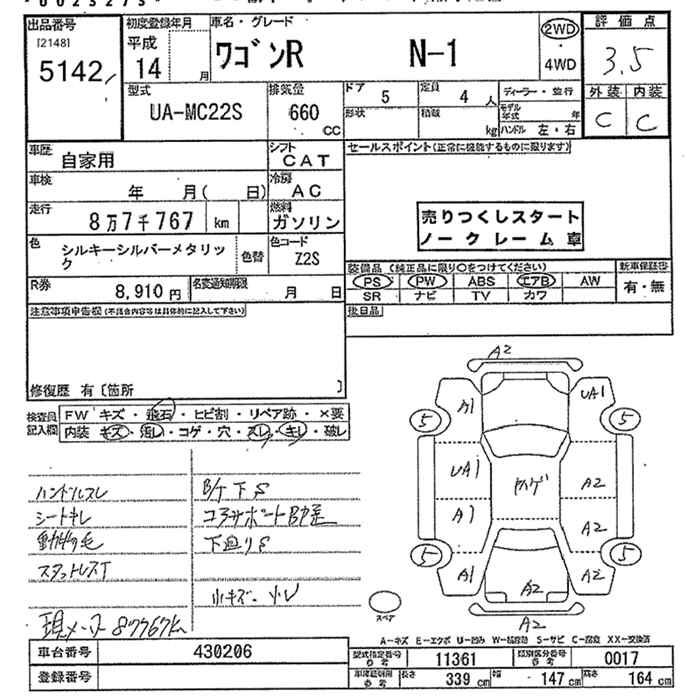 出品番号 初度登録年月 車名・グレード 評価点
[2148] 平成
5142 14 月 ワゴンR N-1 2WD 4WD 3.5
外装 内装
C C
型式 排気量 ドア 定員
UA-MC22S 660 CC 5 4 人 ディーラー・並行
形状 積載 kg モデル年式 年
ハンドル 左・右
車歴 自家用 シフト CAT セールスポイント(正常に機能するものに限ります)
車検 年 月( 日) 冷房 AC
走行 8万7千767 km 燃料 ガソリン
売りつくしスタート
ノークレーム車
色 シルキーシルバーメタリック 色替 色コード Z2S
装備品 (純正品に限り○をつけてください) 新車保証書
PS PW ABS エアB AW 有・無
SR ナビ TV カワ
R券 8,910円 名変通知期限 月 日
注意事項申告欄(不具合内容等は具体的に記入して下さい) 後日品
修復歴 有〔箇所 〕
検査員記入欄 FW キズ・飛石・ヒビ割・リペア跡・×要
内装 キズ・汚レ・コゲ・穴・スレ・キレ・破レ
ハンドルスレ B/F下S
シートキレ コアサポートB歪
動物の毛 下廻りS
スタットレスT
小キズ・凹
現メーター87767km
A2
A1 UA1
5 5
UA1 ヤハゲ A2
A1 A2
5 5
A1 A2 A2
A2
スペア
A-キズ E-エクボ U-凹み S-サビ C-腐食 XX-交換済
車台番号 430206 型式指定番号 参考 11361 類別区分番号 参考 0017
登録番号 参考 長さ 339 cm 幅 147 cm 高さ 164 cm